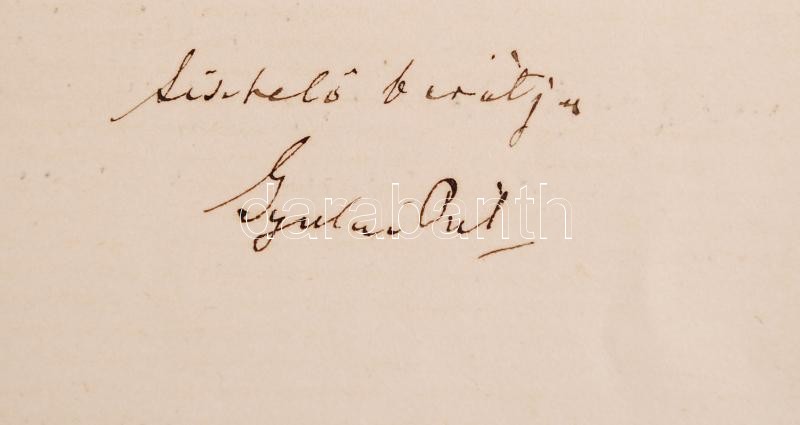 tisztelő barátja
Gyulai Pál
darabanth